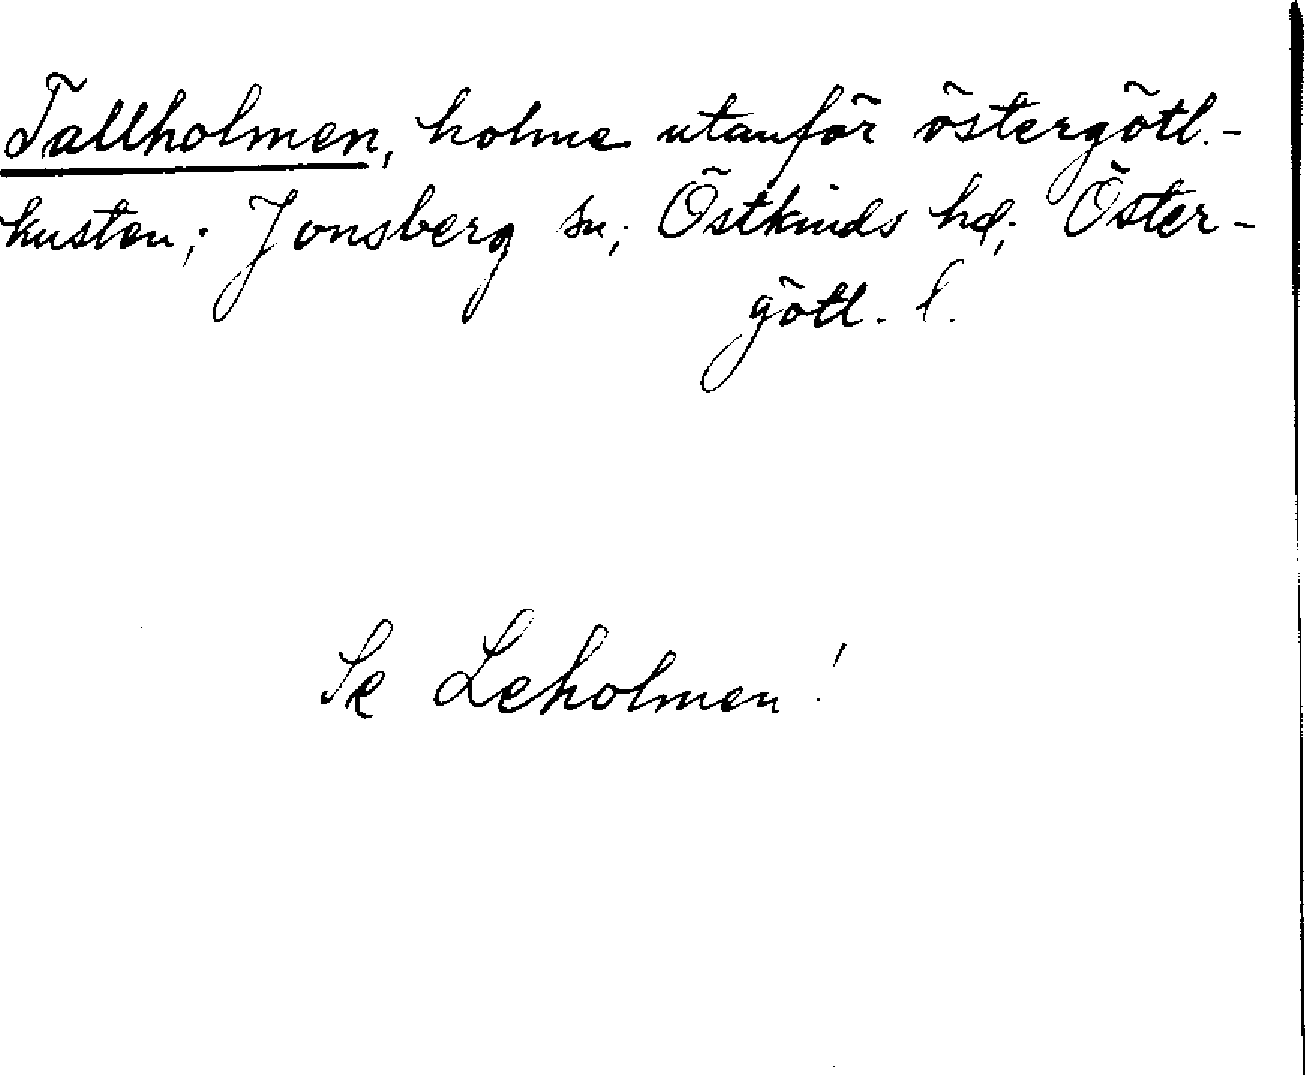 Tallholmen, holme utanför östergötl.-
kusten; Jonsberg sn; Östkinds hd; Öster-
götl. l.
Se Leholmen!